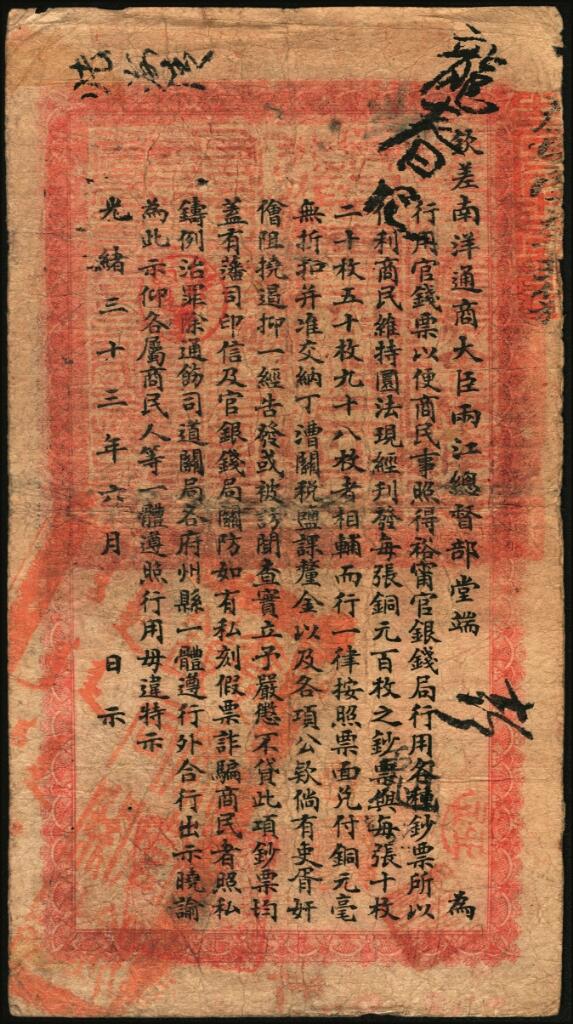 欽差南洋通商大臣兩江總督部堂端　為
行用官錢票以便商民事照得裕甯官銀錢局行用各種鈔票所以
利商民維持圜法現經刊發每張銅元百枚之鈔票與每張十枚
二十枚五十枚九十八枚者相輔而行一律按照票面兌付銅元毫
無折扣并准交納丁漕關稅鹽課釐金以及各項公款倘有吏胥奸
儈阻撓遏抑一經告發或被訪聞查實立予嚴懲不貸此項鈔票均
蓋有藩司印信及官銀錢局關防如有私刻假票詐騙商民者照私
鑄例治罪除通飭司道關局各府州縣一體遵行外合行出示曉諭
為此示仰各屬商民人等一體遵照行用毋違特示
光緒三十三年六月　日示
龍春